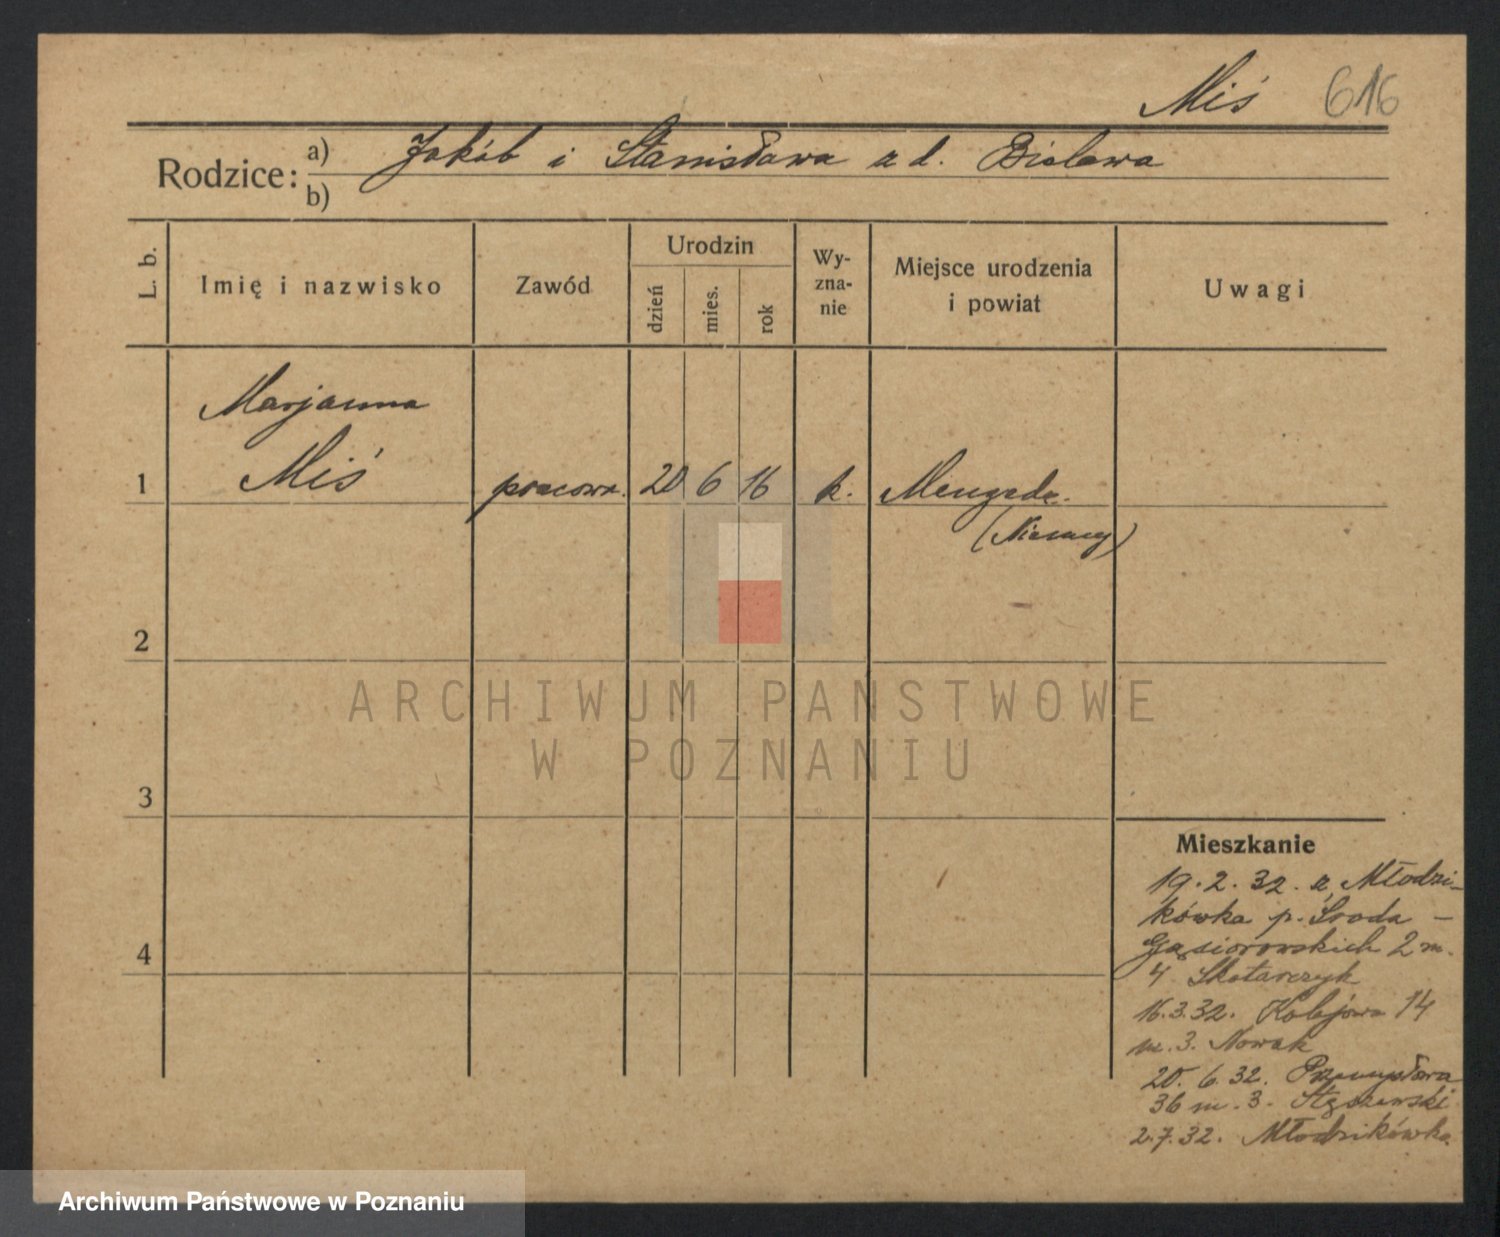 Miś 616
Rodzice: a) Jakób i Stanisława z d. Bielawa
b)
L. b. Imię i nazwisko Zawód Urodzin dzień mies. rok Wy-zna-nie Miejsce urodzenia i powiat Uwagi
Marjanna
1 Miś pracown. 20 6 16 k. Mengede.
(Niemcy)
2
ARCHIWUM PAŃSTWOWE
W POZNANIU
3
Mieszkanie
19.2.32. z Młodzi-
kówka p. Środa –
Gąsiorowskich 2 m.
4 Skotarczyk
16.3.32. Kolejowa 14
m. 3. Nowak
20.6.32. Przemysława
36 m. 3. Stęszewski
2.7.32. Młodzikówko
4
Archiwum Państwowe w Poznaniu